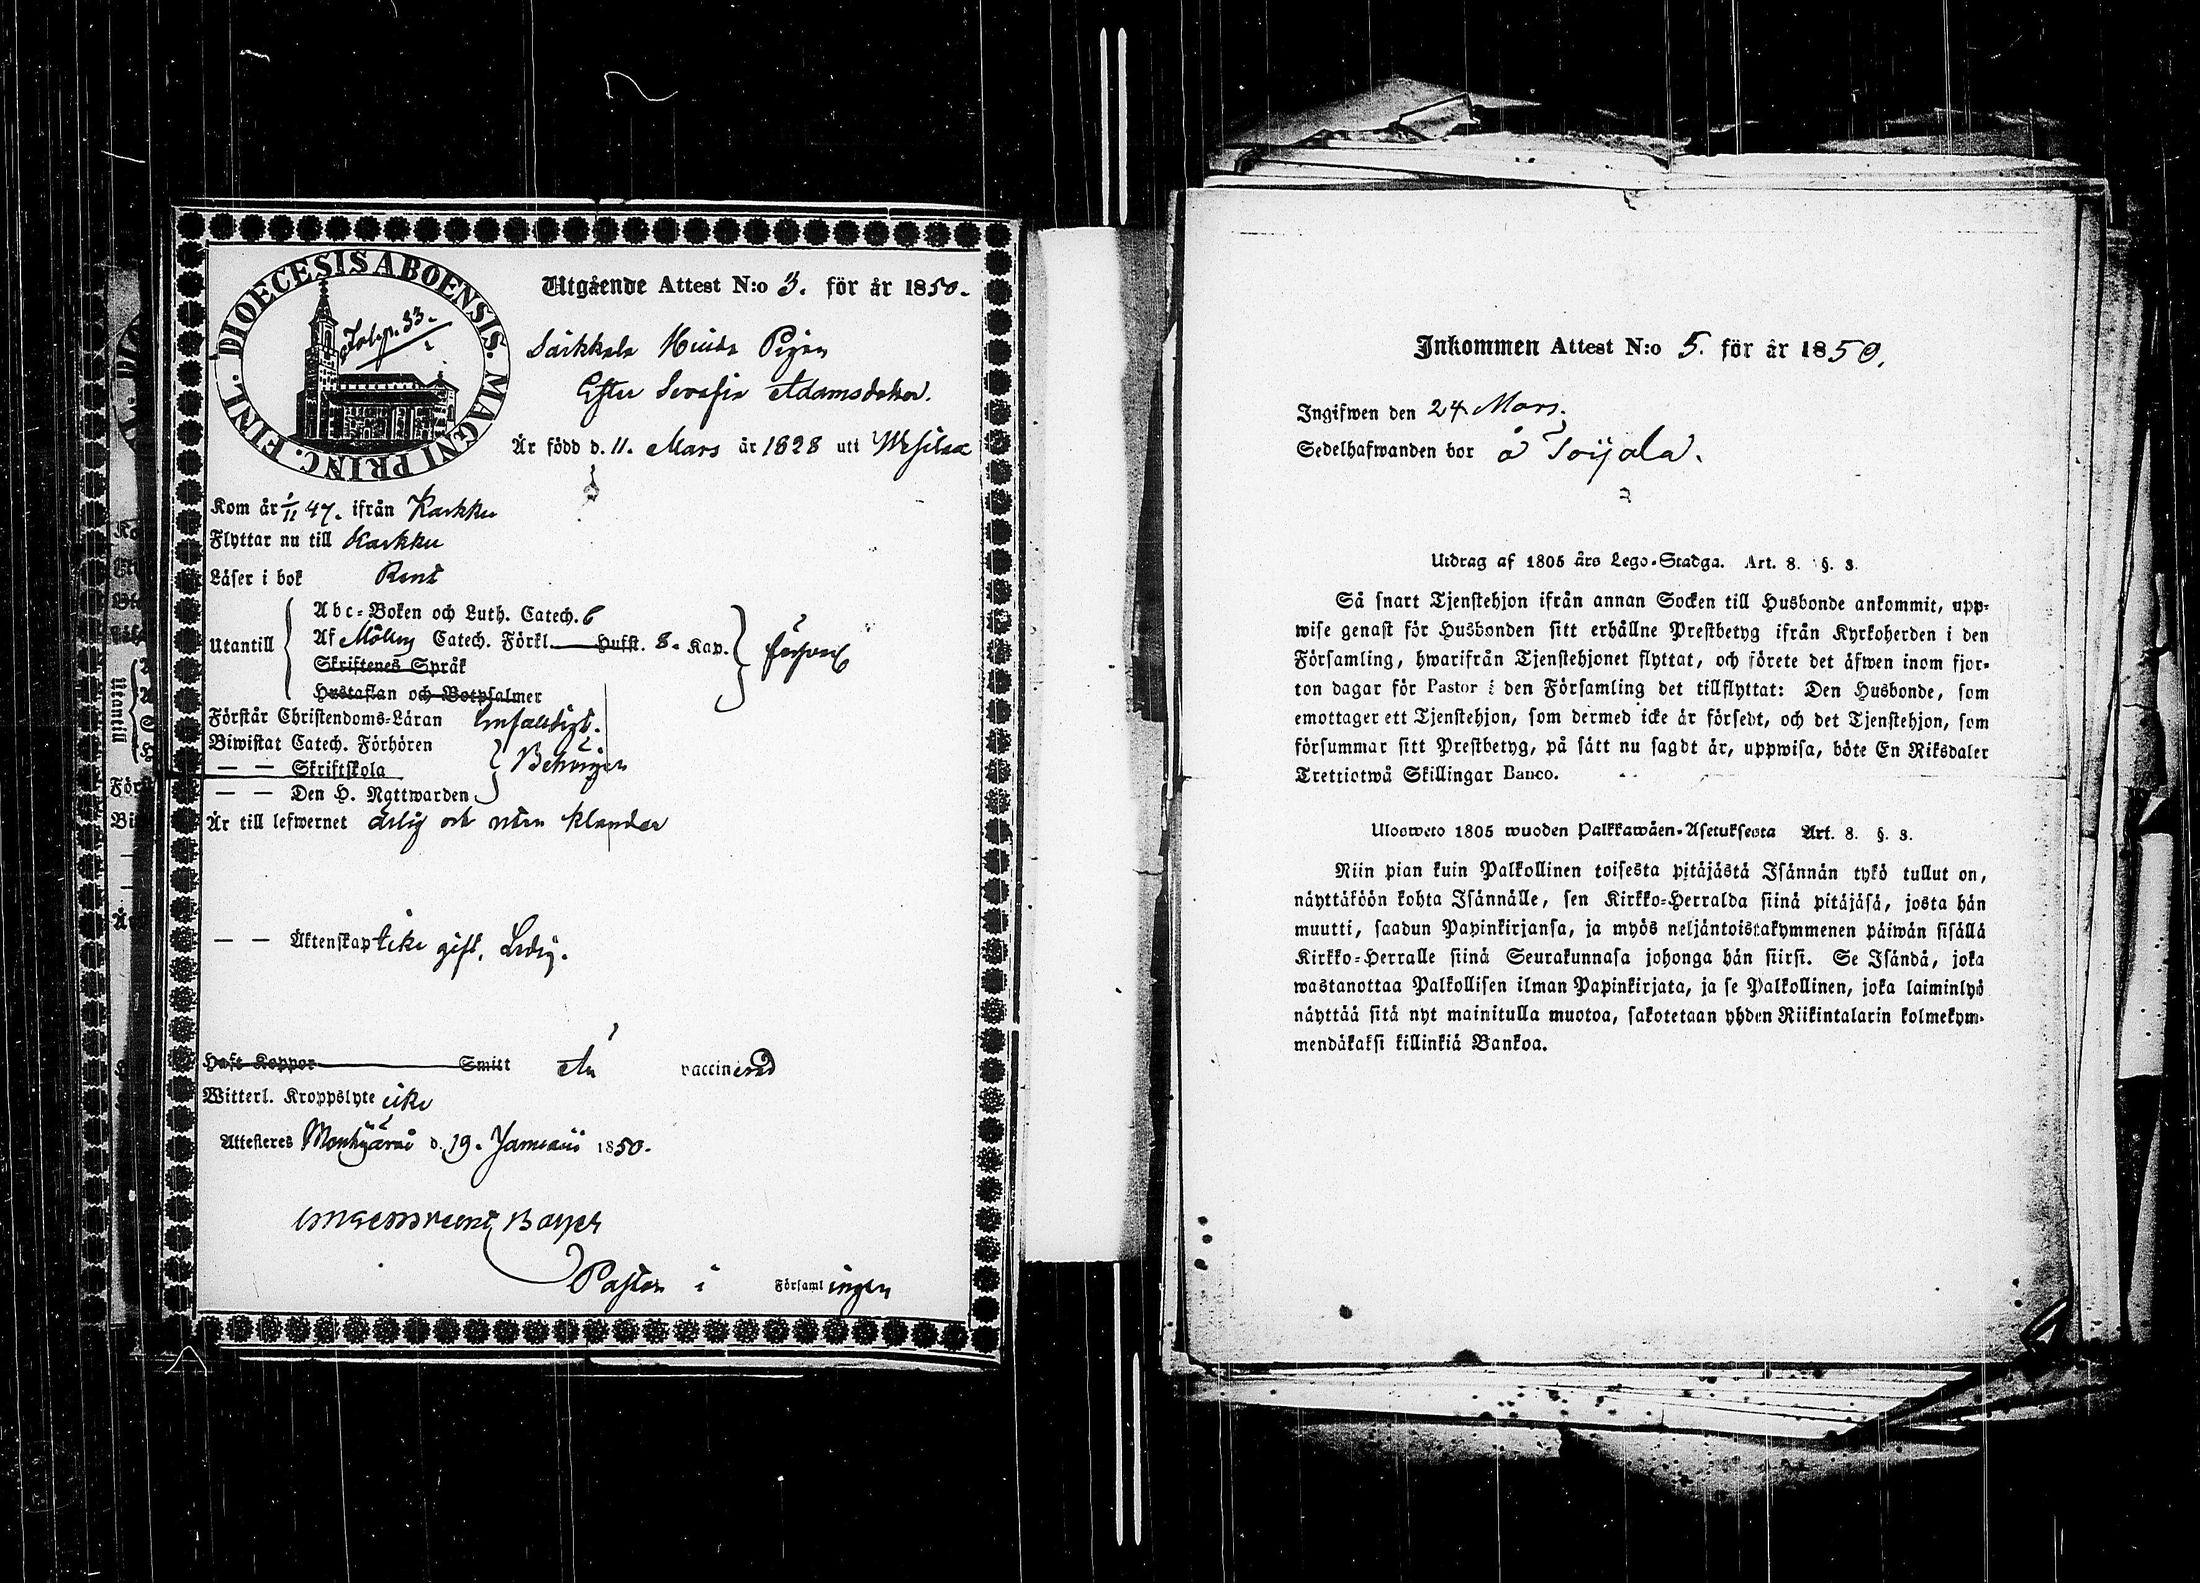 DIOECESIS ABOENSIS. MAGNI PRINC. FINL.
Fol. p. 33.
Utgående Attest N:o 3. för år 1850.
Pigan
Ester Serafia Adamsdoter.
Är född d. 11. Mars år 1828 uti Wesilax
Kom år 1/11 47. ifrån Karkku
Flyttar nu till Karkku
Läser i bok Rent
Utantill
Abc-Boken och Luth. Catech. 6
Af Catech. Förkl. Husst. 8. Kap.
Skriftenes Språk
Hustaflan och Botpsalmer
Förstår Christendoms-Läran enfaldigt.
Biwistat Catech. Förhören
— — Skriftskola
— — Den H. Nattwarden
Är till lefwernet ärlig och utan klander
— — Äktenskap icke gift. Ledig.
Haft Koppor Smitt Är vaccinerad
Witterl. Kroppslyte icke
Attesteres Mouhijärwi d. 19. Januarii 1850.
Pastor i Församlingen
Inkommen Attest N:o 5. för år 1850.
Ingifwen den 24 Mars.
Sedelhafwanden bor å Toijala.
Utdrag af 1805 års Lego-Stadga. Art. 8. §. 3.
Så snart Tjenstehjon ifrån annan Socken till Husbonde ankommit, upp-
wise genast för Husbonden sitt erhållne Prestbetyg ifrån Kyrkoherden i den
Församling, hwarifrån Tjenstehjonet flyttat, och förete det äfwen inom fjor-
ton dagar för Pastor i den Församling det tillflyttat: Den Husbonde, som
emottager ett Tjenstehjon, som dermed icke är försedt, och det Tjenstehjon, som
försummar sitt Prestbetyg, på sätt nu sagdt är, uppwisa, böte En Riksdaler
Trettiotwå Skillingar Banco.
Ulosweto 1805 wuoden Palkkawäen-Asetuksesta Art. 8. §. 3.
Niin pian kuin Palkollinen toisesta pitäjästä Isännän tykö tullut on,
näyttäköön kohta Isännälle, sen Kirkko-Herralda siinä pitäjäsä, josta hän
muutti, saadun Papinkirjansa, ja myös neljäntoistakymmenen päiwän sisällä
Kirkko-Herralle siinä Seurakunnasa johonga hän siirsi. Se Isändä, joka
wastanottaa Palkollisen ilman Papinkirjata, ja se Palkollinen, joka laiminlyö
näyttää sitä nyt mainitulla muotoa, sakotetaan yhden Riikintalarin kolmekym-
mendäkaksi killinkiä Bankoa.